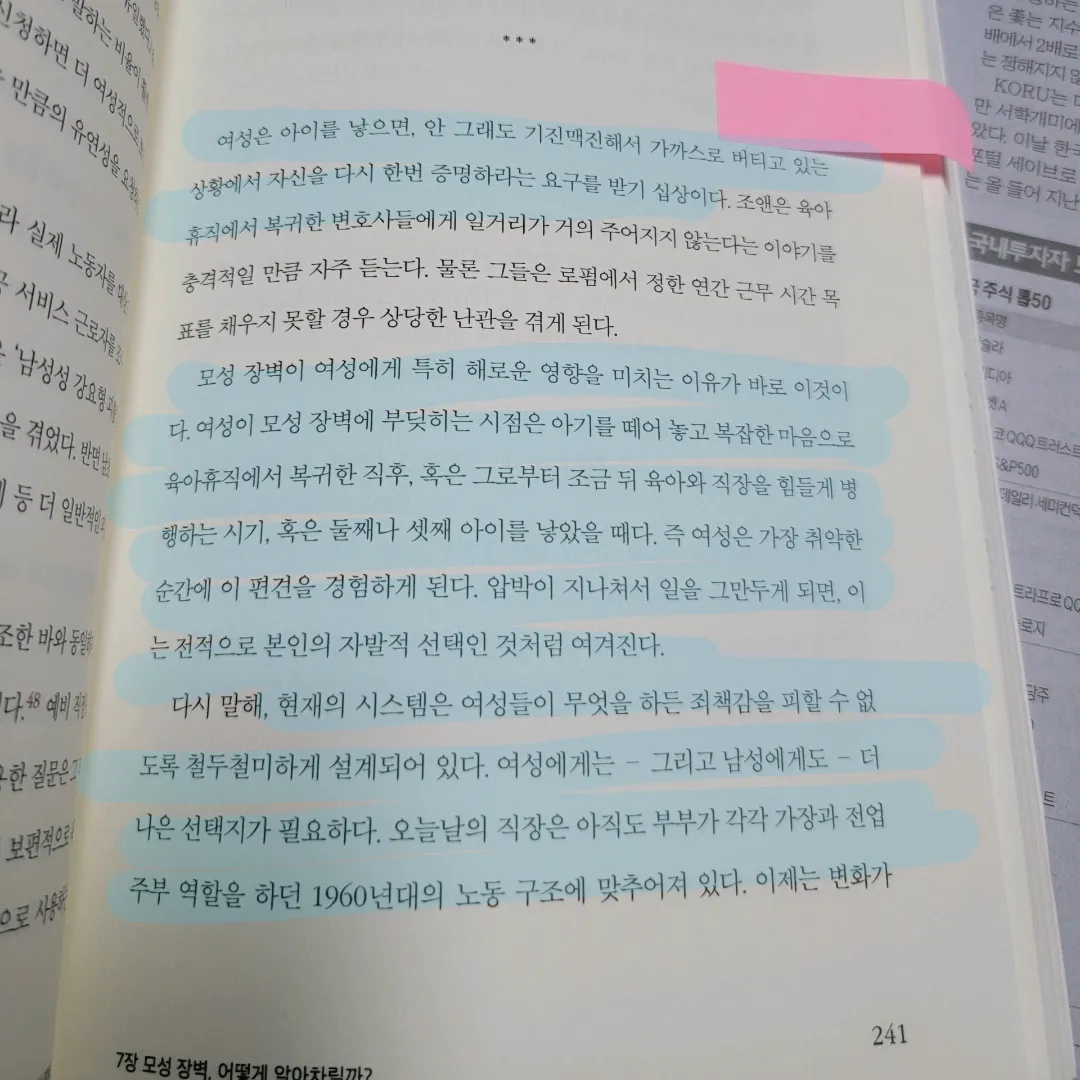 * * *
여성은 아이를 낳으면, 안 그래도 기진맥진해서 가까스로 버티고 있는
상황에서 자신을 다시 한번 증명하라는 요구를 받기 십상이다. 조앤은 육아
휴직에서 복귀한 변호사들에게 일거리가 거의 주어지지 않는다는 이야기를
충격적일 만큼 자주 듣는다. 물론 그들은 로펌에서 정한 연간 근무 시간 목
표를 채우지 못할 경우 상당한 난관을 겪게 된다.
모성 장벽이 여성에게 특히 해로운 영향을 미치는 이유가 바로 이것이
다. 여성이 모성 장벽에 부딪히는 시점은 아기를 떼어 놓고 복잡한 마음으로
육아휴직에서 복귀한 직후, 혹은 그로부터 조금 뒤 육아와 직장을 힘들게 병
행하는 시기, 혹은 둘째나 셋째 아이를 낳았을 때다. 즉 여성은 가장 취약한
순간에 이 편견을 경험하게 된다. 압박이 지나쳐서 일을 그만두게 되면, 이
는 전적으로 본인의 자발적 선택인 것처럼 여겨진다.
다시 말해, 현재의 시스템은 여성들이 무엇을 하든 죄책감을 피할 수 없
도록 철두철미하게 설계되어 있다. 여성에게는 – 그리고 남성에게도 – 더
나은 선택지가 필요하다. 오늘날의 직장은 아직도 부부가 각각 가장과 전업
주부 역할을 하던 1960년대의 노동 구조에 맞추어져 있다. 이제는 변화가
241
7장 모성 장벽, 어떻게 알아차릴까?
말하는 비율이
신청하면 더 여성적으로
만큼의 유연성을
라 실제 노동자를
서비스 근로자를
'남성성 강요형
을 겪었다. 반면
등 더 일반적인
조한 바와 동일하
다.48 예비
한 질문은
보편적으로
으로 사용하
은 좇는 지수
배에서 2배로
는 정해지지 않
KORU는
만 서학개미에
았다. 이날 한국
포털 세이브로
는 올 들어 지난
국내투자자
주식 톱50
종목명
QQQ 트러스트
S&P500
데일리 세미컨덕
트라프로 QQ